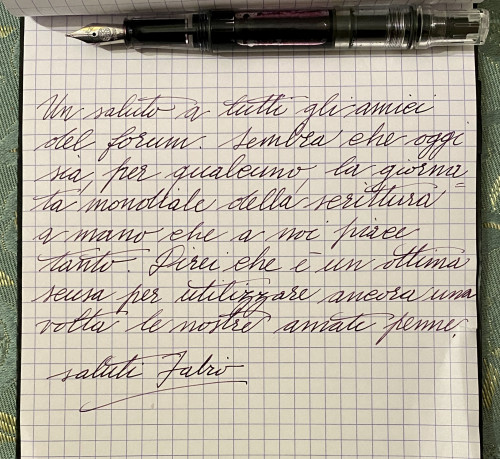 Un saluto a tutti gli amici
del forum. Sembra che oggi
sia, per qualcuno, la giorna=
ta mondiale della scrittura
a mano che a noi piace
tanto. Direi che è un ottima
scusa per utilizzare ancora una
volta le nostre amate penne.
saluti Fabio